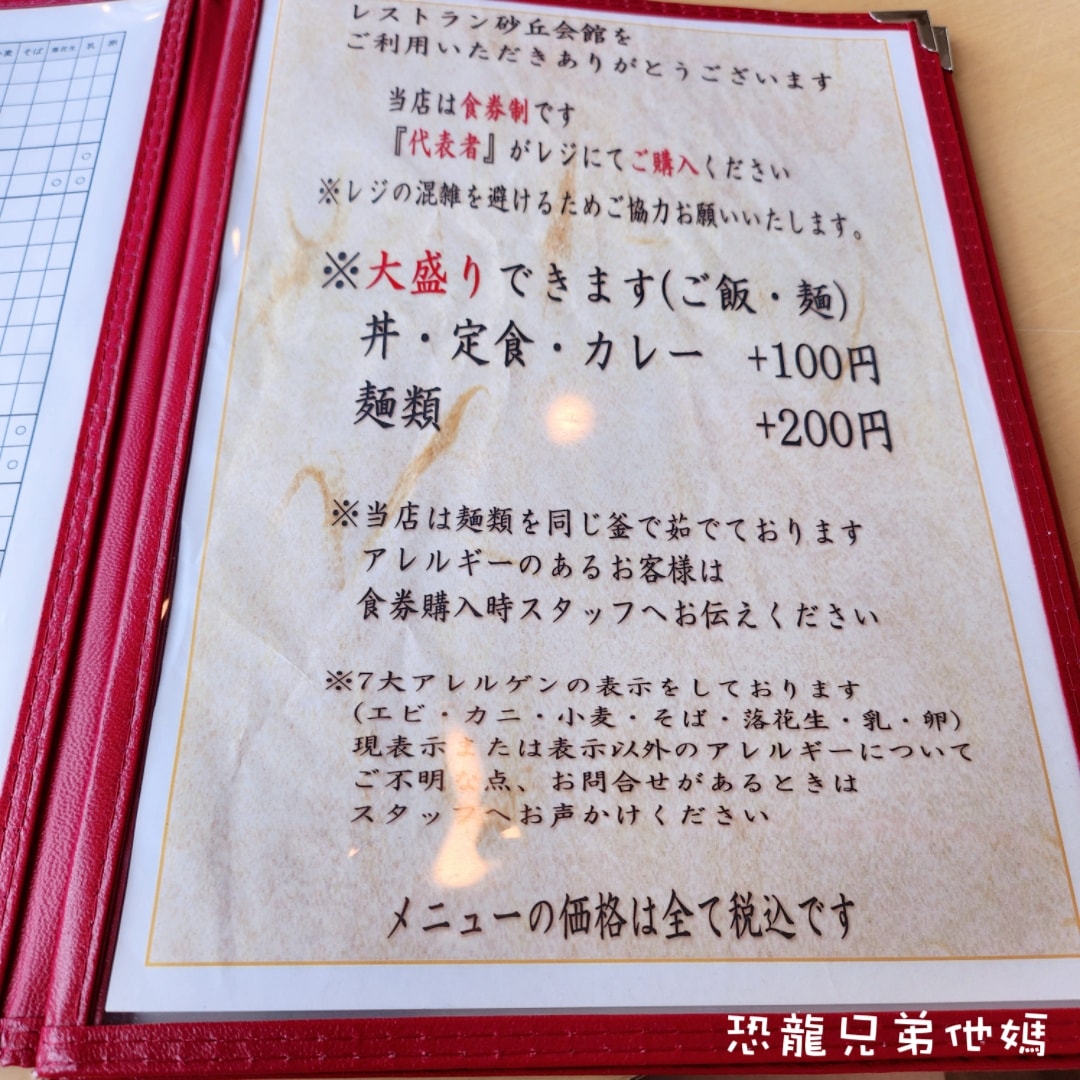 麦 そば 落花生 乳 卵
レストラン砂丘会館を
ご利用いただきありがとうございます
当店は食券制です
『代表者』がレジにてご購入ください
※レジの混雑を避けるためご協力お願いいたします。
※大盛りできます(ご飯・麺)
丼・定食・カレー +100円
麺類 +200円
※当店は麺類を同じ釜で茹でております
アレルギーのあるお客様は
食券購入時スタッフへお伝えください
※7大アレルゲンの表示をしております
(エビ・カニ・小麦・そば・落花生・乳・卵)
現表示または表示以外のアレルギーについて
ご不明な点、お問合せがあるときは
スタッフへお声かけください
メニューの価格は全て税込です
恐龍兄弟他媽